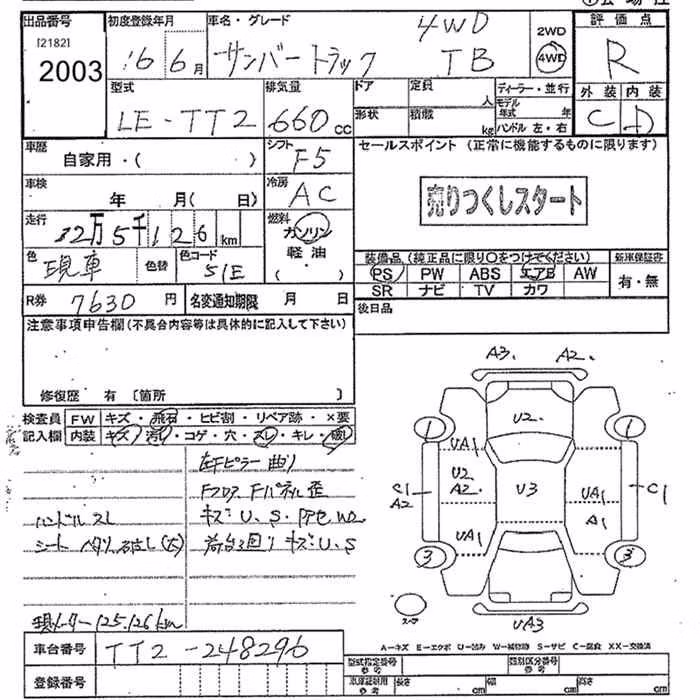 出品番号 初度登録年月 車名・グレード 4WD 2WD 評価点
[2182] 16 6月 サンバートラック TB 4WD R
2003
型式 排気量 ドア 定員 人 ディーラー・並行 外装 内装
LE-TT2 660cc 形状 積載 kg モデル年式 年 C D
ハンドル 左・右
車歴 自家用・( ) シフト F5 セールスポイント(正常に機能するものに限ります)
車検 年 月(日) 冷房 AC 売りつくしスタート
走行 12万5千126km 燃料 ガソリン
軽油
( )
色 現車 色替 色コード 51E 装備品(純正品に限り○をつけてください) 新車保証書
PS PW ABS エアB AW 有・無
SR ナビ TV カワ
R券 7630円 名変通知期限 月 日 後日品
注意事項申告欄(不具合内容等は具体的に記入して下さい)
修復歴 有 〔箇所 〕
検査員 FW キズ・飛石・ヒビ割・リペア跡・×要
記入欄 内装 キズ・汚れ・コゲ・穴・スレ・キレ・破レ
A3. A2.
1 U2. 1
UA1 UA1
C1 A2 U2 A2. U3 UA1 C1
A1
UA1
3 3
UA3
左Fピラー曲り
Fフロア Fパネル歪
ハンドルスレ キズ・U、S・
シート ヘタリ 破レ(大) 荷台回り キズ・U、S
現メーター125.126km
A-キズ E-エクボ U-凹み W-補修跡 S-サビ C-腐食 XX-交換済
車台番号 TT2-248296 型式指定番号 参考 類別区分番号 参考
登録番号 車庫証明用 参考 長さ cm 幅 cm 高さ cm